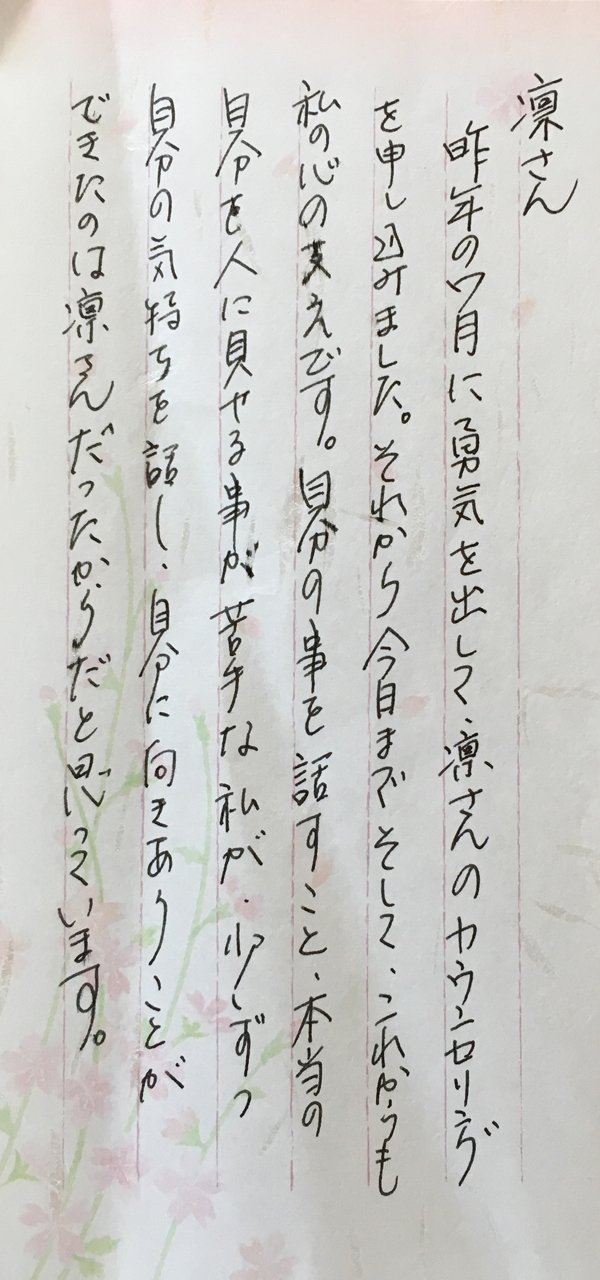 凛さん
昨年の7月に勇気を出して、凛さんのカウンセリング
を申し込みました。それから今日までそして、これからも
私の心の支えです。自分の事を話すこと、本当の
自分を人に見せる事が苦手な私が、少しずつ
自分の気持ちを話し、自分に向きあうことが
できたのは凛さんだったからだと思っています。